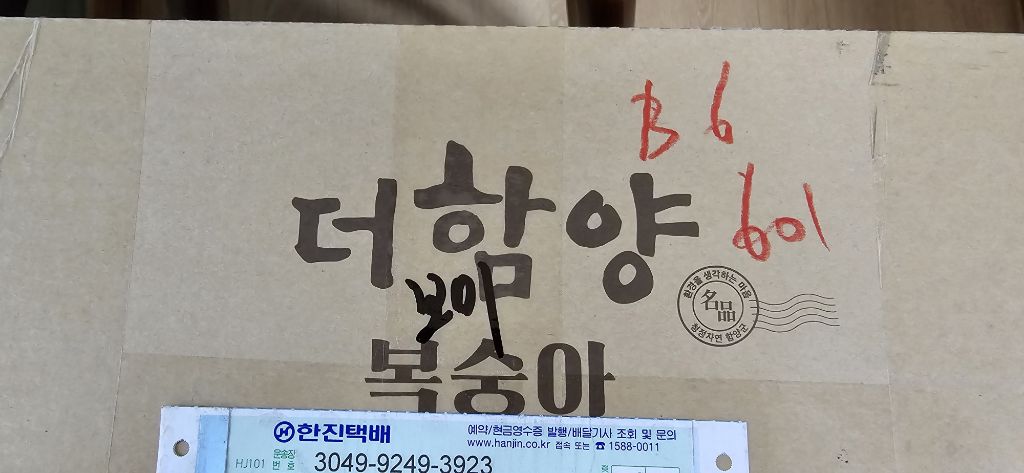 B 6
601
더함양
보미
복숭아
환경을 생각하는 마음
名品
청정자연 함양군
한진택배
예약/현금영수증 발행/배달기사 조회 및 문의
www.hanjin.co.kr 접속 또는 ☎ 1588-0011
HJ101 운송장번호 3049-9249-3923